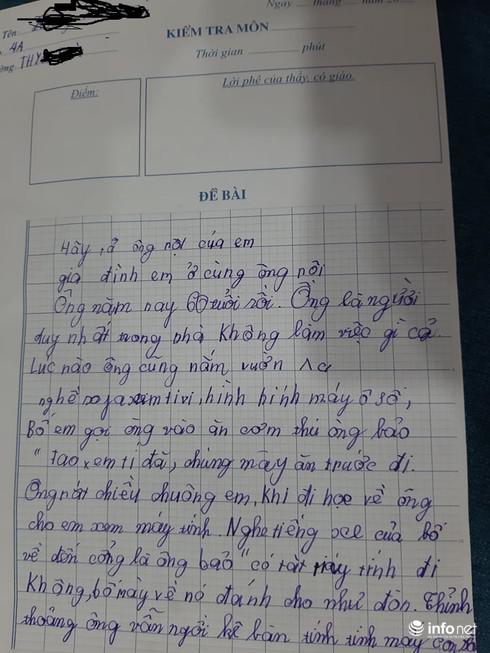 Ngày tháng năm 20
Tên
4A KIỂM TRA MÔN
ờng THY Thời gian phút
Điểm: Lời phê của thầy, cô giáo.
ĐỀ BÀI
Hãy tả ông nội của em
gia đình em ở cùng ông nội
Ông năm nay 60 tuổi rồi. Ông là người
duy nhất trong nhà không làm việc gì cả.
Lúc nào ông cũng nằm vườn ra
nghế xem tivi, hình hình máy ô số,
Bố em gọi ông vào ăn cơm thú ông bảo
"Tao xem ti đã, chúng mày ăn trước đi.
Ông rất chiều chuông em, khi đi học về ông
cho em xem máy tính. Nghe tiếng xe của bố
về đến cổng là ông bảo "có tắt máy tính đi
không, bố mày về nó đánh cho như đòn. Thỉnh
thoảng ông vẫn ngồi kê bàn tính tính mấy con
infonet